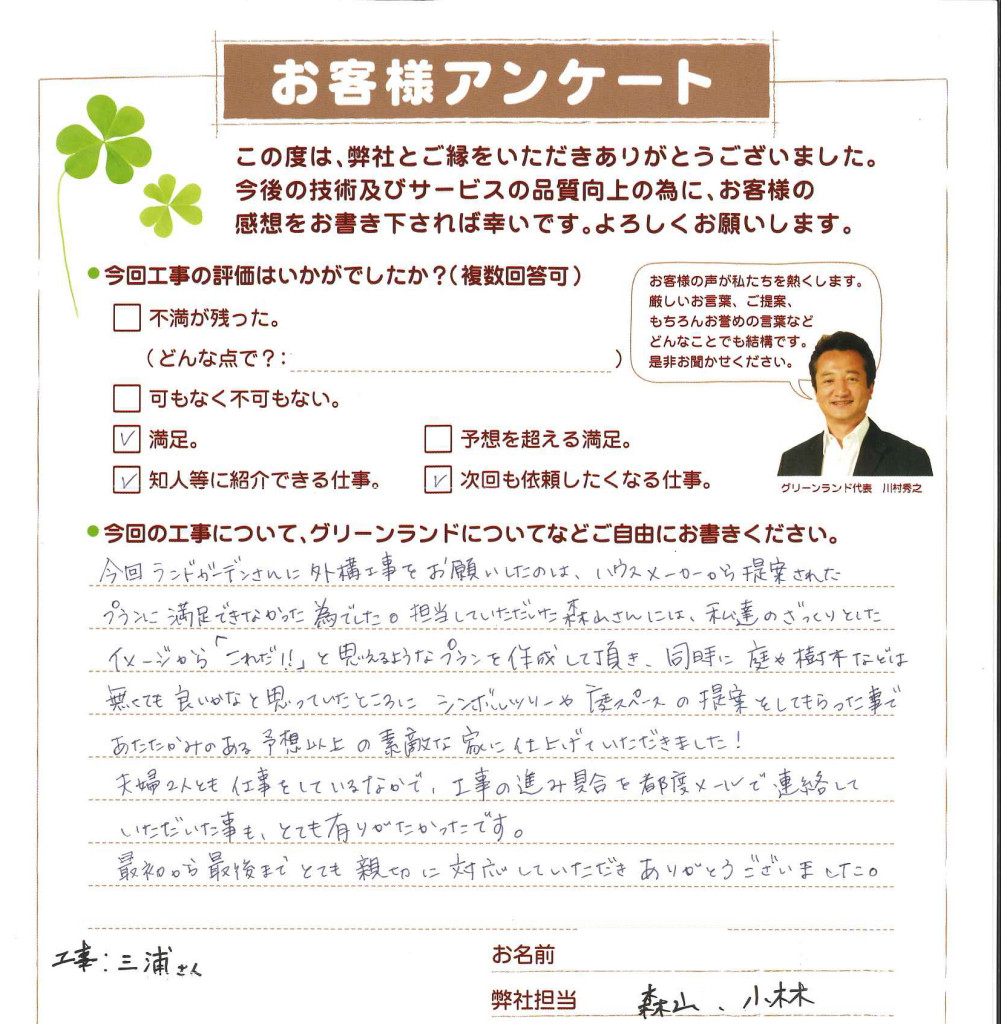 お客様アンケート
この度は、弊社とご縁をいただきありがとうございました。
今後の技術及びサービスの品質向上の為に、お客様の
感想をお書き下されば幸いです。よろしくお願いします。
●今回工事の評価はいかがでしたか？(複数回答可)
不満が残った。
(どんな点で？: )
可もなく不可もない。
満足。
予想を超える満足。
知人等に紹介できる仕事。
次回も依頼したくなる仕事。
お客様の声が私たちを熱くします。
厳しいお言葉、ご提案、
もちろんお誉めの言葉など
どんなことでも結構です。
是非お聞かせください。
グリーンランド代表 川村秀之
●今回の工事について、グリーンランドについてなどご自由にお書きください。
今回ランドガーデンさんに外構工事をお願いしたのは、ハウスメーカーから提案された
プランに満足できなかった為でした。担当していただいた森山さんには、私達のざっくりとした
イメージから「これだ!!」と思えるようなプランを作成して頂き、同時に庭や樹木などは
無くても良いかなと思っていたところにシンボルツリーや庭スペースの提案をしてもらった事で
あたたかみのある予想以上の素敵な家に仕上げていただきました!
夫婦2人とも仕事をしているなかで、工事の進み具合を都度メールで連絡して
いただいた事も、とても有りがたかったです。
最初から最後までとても親切に対応していただきありがとうございました。
工事:三浦さん
お名前
弊社担当 森山、小林